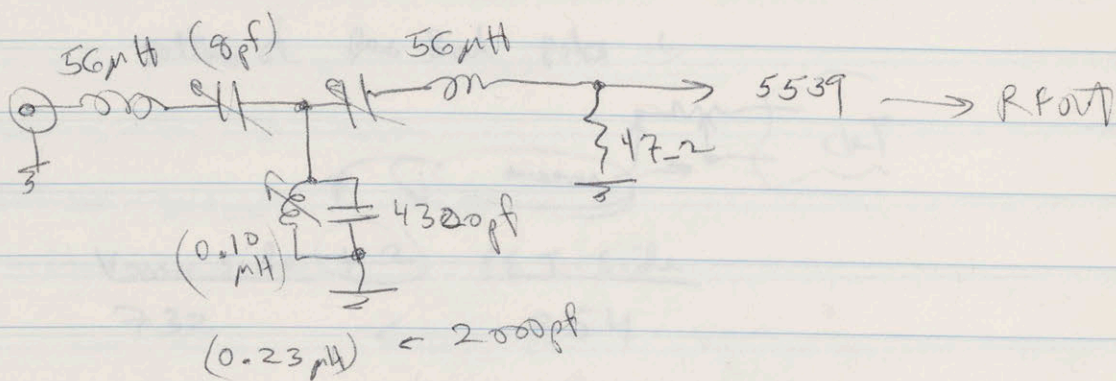 56μH (8pf) 56μH
5539 → RFout
47Ω
4300pf
(0.10 μH)
(0.23μH) ← 2000pf